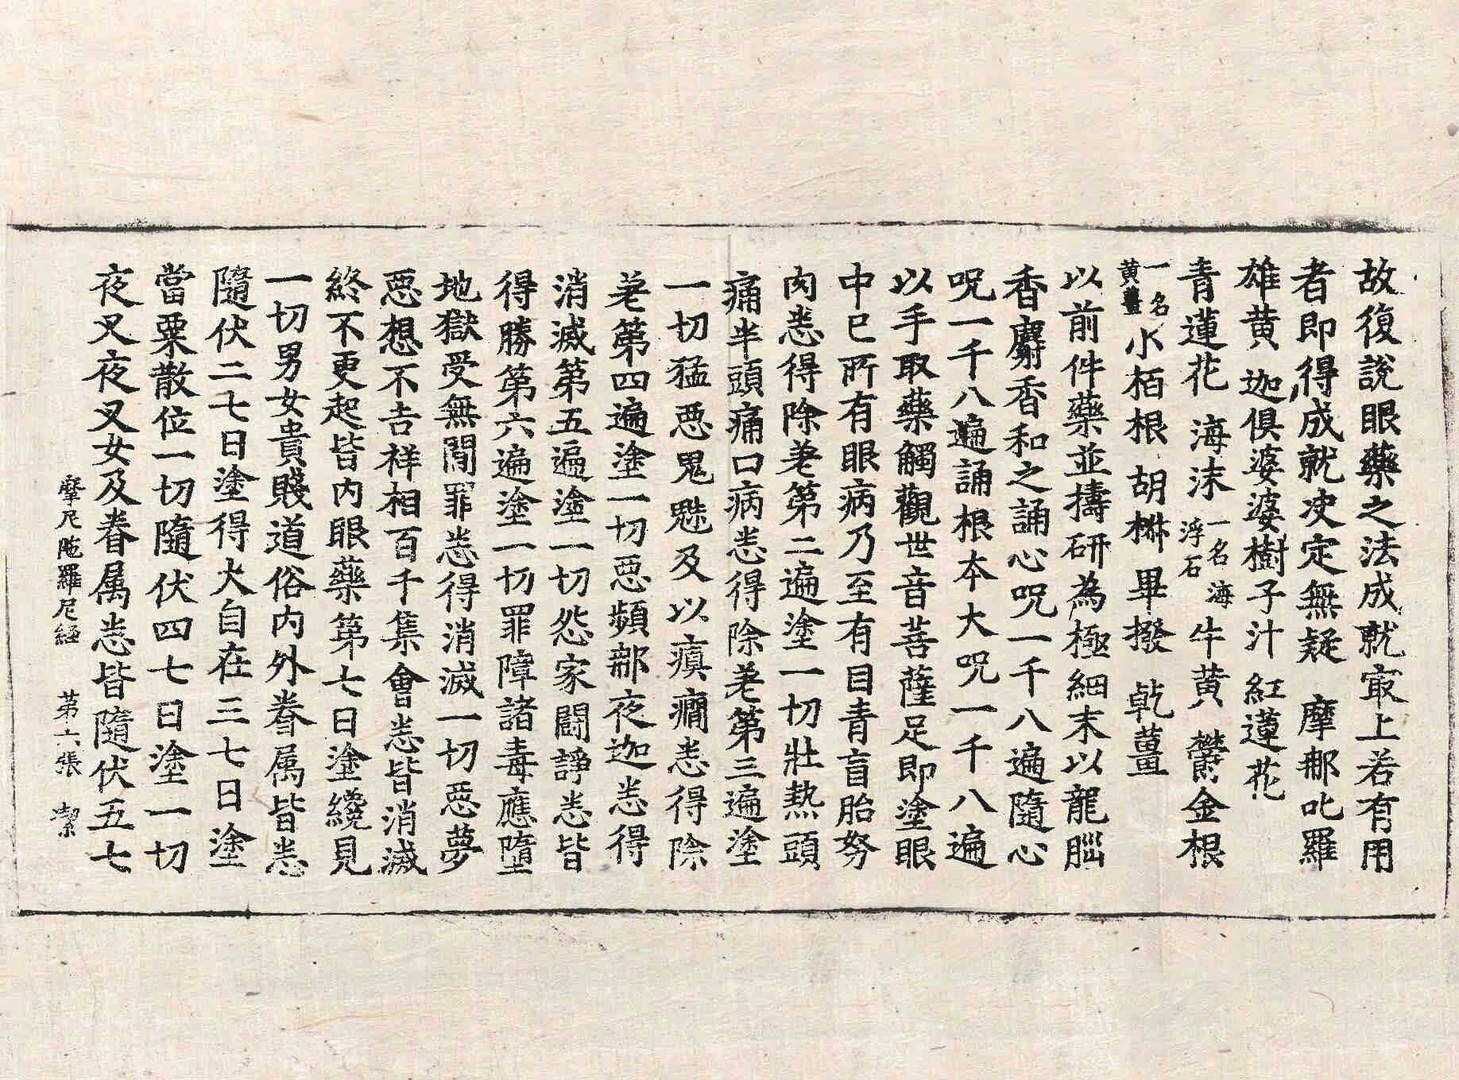 故復說眼藥之法成就㝡上若有用
者即得成就決定無疑 摩那叱羅
雄黃 迦俱婆婆樹子汁 紅蓮花
青蓮花 海沫 一名海浮石 牛黃 鬱金根
一名黃薑 小栢根 胡椒 畢撥 乾薑
以前件藥並擣研為極細末以龍腦
香麝香和之誦心呪一千八遍隨心
呪一千八遍誦根本大呪一千八遍
以手取藥觸觀世音菩薩足即塗眼
中已所有眼病乃至有目青盲胎努
肉悉得除差第二遍塗一切壯熱頭
痛半頭痛口病悉得除差第三遍塗
一切猛惡鬼魅及以瘨癎悉得除
差第四遍塗一切惡頻那夜迦悉得
消滅第五遍塗一切怨家鬪諍悉皆
得勝第六遍塗一切罪障諸毒應墮
地獄受無間罪悉得消滅一切惡夢
惡想不吉祥相百千集會悉皆消滅
終不更起皆內眼藥第七日塗纔見
一切男女貴賤道俗內外眷属皆悉
隨伏二七日塗得大自在三七日塗
當粟散位一切隨伏四七日塗一切
夜叉夜叉女及眷属悉皆隨伏五七
摩尼陁羅尼經 第六張 㓗